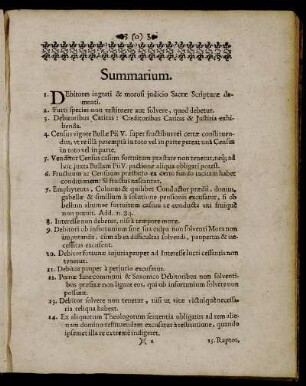 (0)
Summarium.
1. DEbitores ingrati & morosi judicio Sacræ Scripturæ dementi.
2. Furti species non restituere aut solvere, quod debetur.
3. Debitoribus Caticis: Creditoribus Caticis & Justitia exhibenda.
4. Census vigore Bullæ Pii V. super fructibus rei certæ constituendus,
ut re illâ peremptâ in toto vel in parte pereat una Census
in toto vel in parte.
5. Venditor Census casum fortuitum præstare non tenetur, neq; ad
hoc juxta Bullam Pii V. pactione aliqua obligari potest.
6. Fructuum ac Censuum præstatio ex certo fundo tacitam habet
conditionem: Si fructus nascantur.
7. Emphyteuta, Colonus & quilibet Conductor prædii, domus,
gabellæ & similium à solutione pensionis excusatur, si ob
bellum aliumve fortuitum casum re conducta uti fruique
non potuit. Add. n. 24.
8. Interesse non debetur, nisi à tempore moræ.
9. Debitori ob infortunium sine sua culpa non solventi Mora non
imputanda, cùm ab ea difficultas solvendi, paupertas & necessitas
excuset.
10. Debitor fortunæ injuriâ pauper ad Interesse lucri cessantis non
tenetur.
11. Debitor pauper à perjurio excusatur.
12. Pœnæ Jure communi & Canonico Debitoribus non solventibus
præfixæ non ligant eos, qui ob infortunium solvere non
possunt.
13. Debitor solvere non tenetur, nisi ut vitæ victuique necessaria
reliqua habeat.
14. Ex aliquorum Theologorum sententia obligatus ad rem alienam
domino restituendam excusatur à restitutione, quando
ipse met illa re extremè indiget.
15. Raptor,